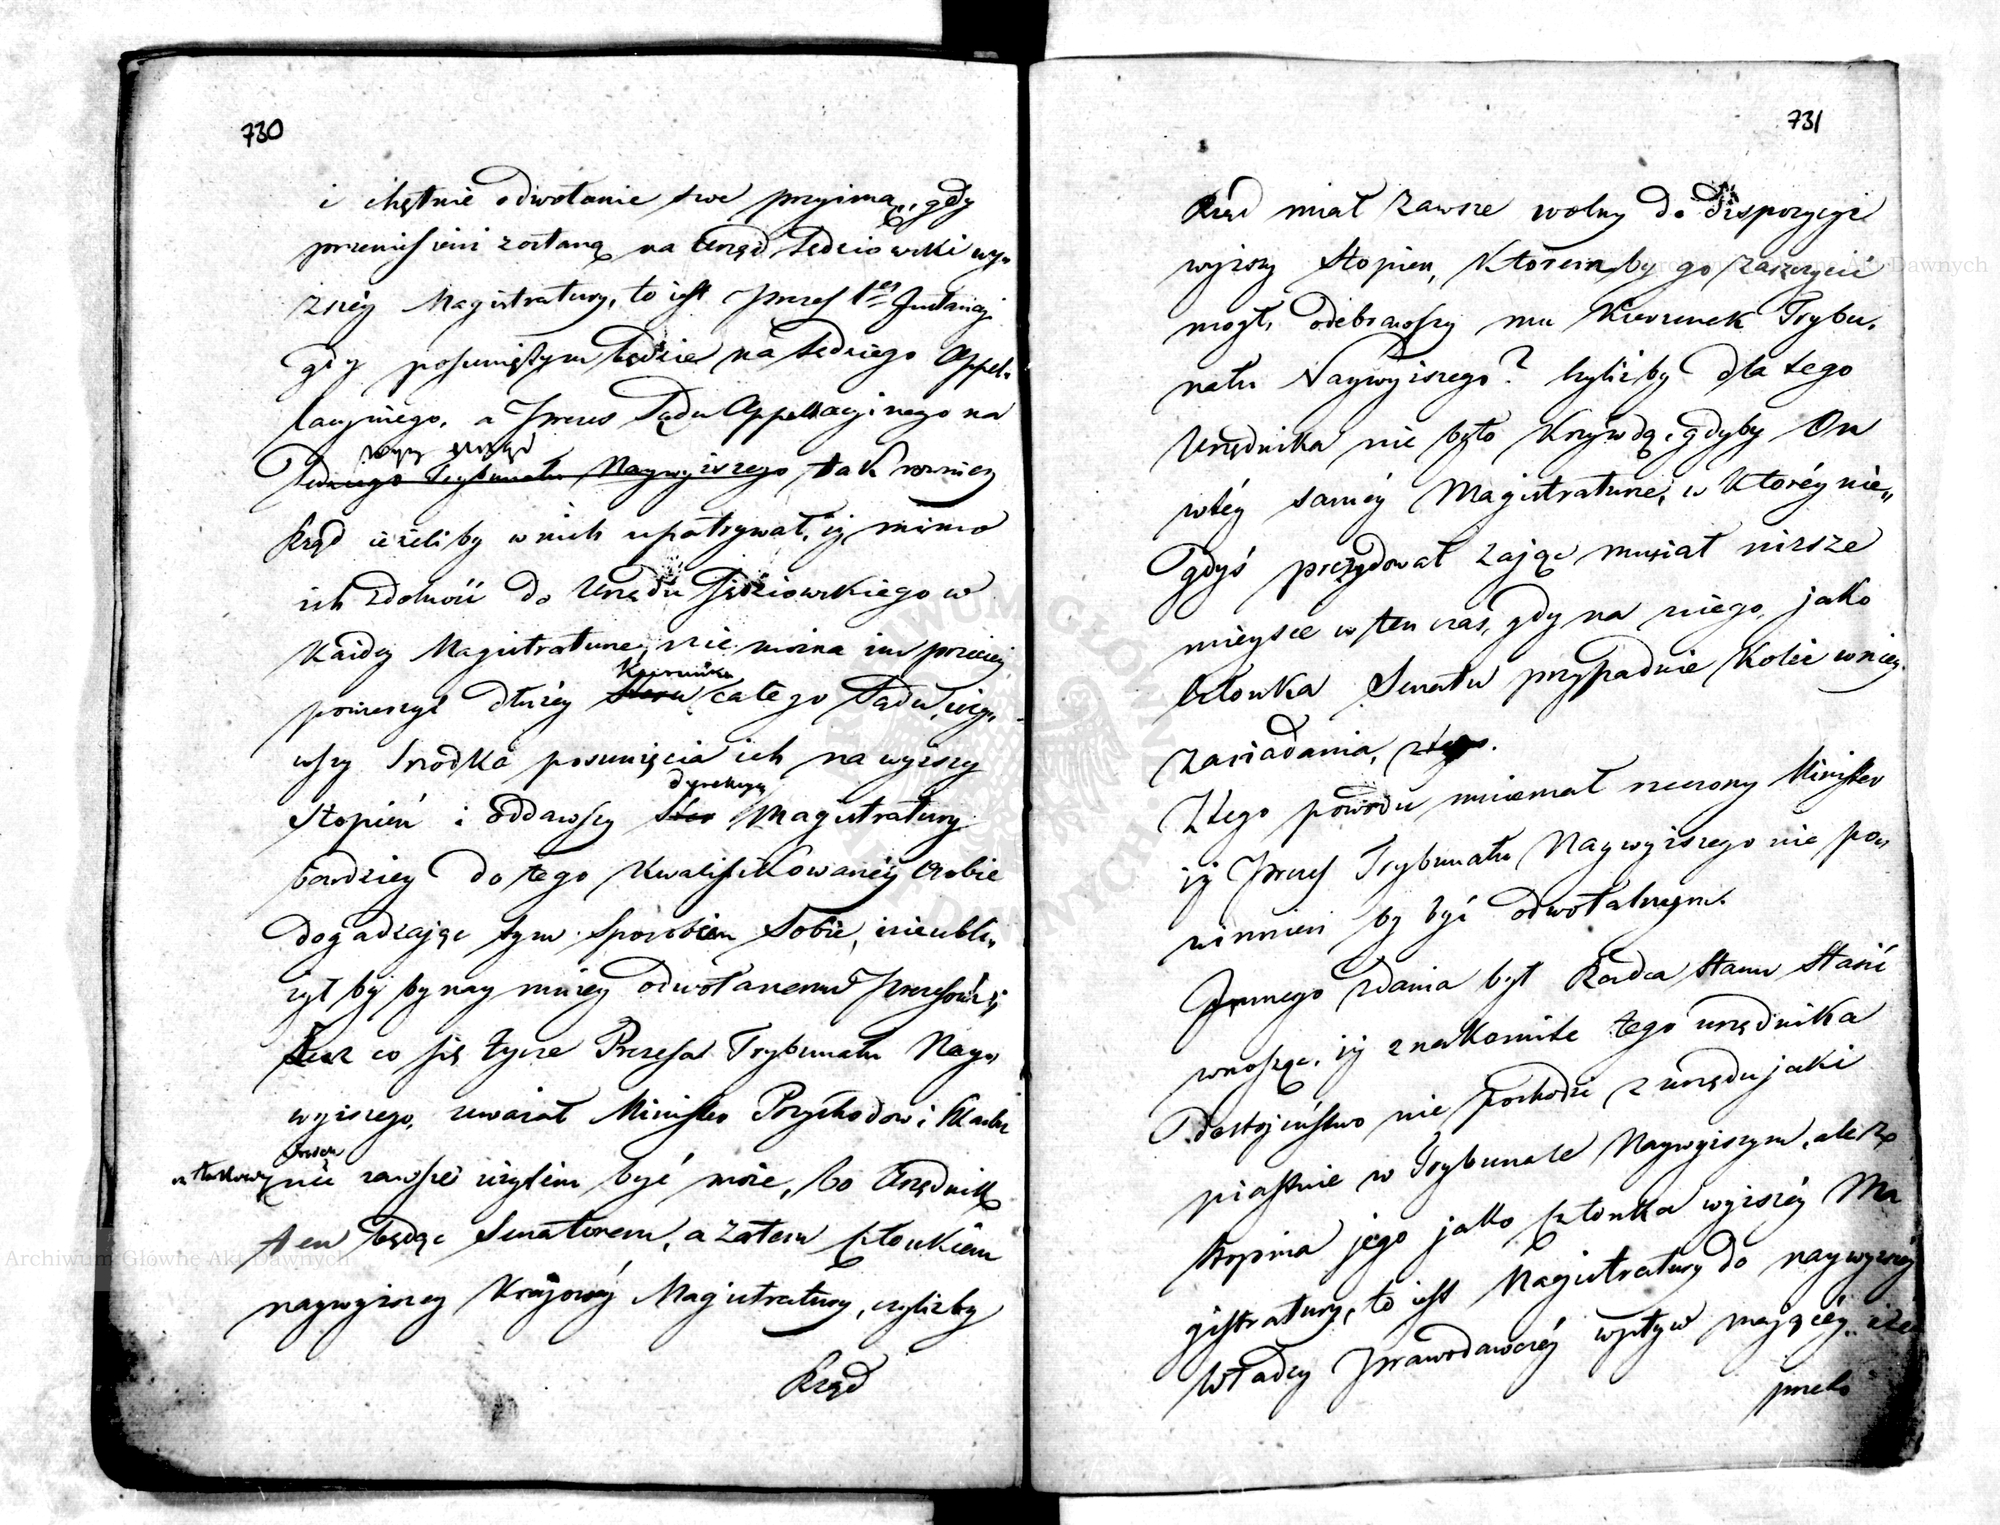 730
i chętnie odwołanie swe przyimą, gdy
przeniesieni zostaną na Urząd Sędziowski wy„
zszéy Magistratury, to iest Prezes 1éy Instancyi
gdy posuniętym będzie na Sędziego Appel„
lacyinego, a Prezes Sądu Appellacyinego na
wyższy urząd
Sędziego Trybunału Naywyższego, tak rowniez
Rząd ieżeliby w nich upatrywał, iż mimo
ich zdolności do Urzędu Sędziowskiego w
każdey Magistraturze, nie można im przecież
Kierunku
powierzyć dłużéy steru całego Sądu, uży„
wszy srodka posunięcia ich na wyższy
dyrekcyą
stopień i oddawszy ster Magistratury
bardziey do tego kwalifikowanéy osobie
dogadzaiąc tym sposobem sobie, nieubli„
żył by by nay mniey odwołanemu Prezesowi;
Lecz co się tycze Prezesa Trybunału Nay„
wyższego, uważał Minister Przychodow i Skarbu
środek
nie zawsze użytem być może, bo Urzędnik
ten będąc Senatorem, a zatem Członkiem
naywyższey Kraiowéy Magistratury, czyliżby
Rząd
731
Rząd miał zawsze wolny do dispozycyi
wyższy stopien, ktorem by go zaszczycić
mogł, odebrawszy mu kierunek Trybu„
nału Naywyższego? Czyliżby dla tego
Urzędnika nie było krzywdą, gdyby On
w téy saméy Magistraturze, w któréy nie„
gdyś prezydował zaiąc musiał nizsze
mieysce w ten czas, gdy na niego, jako
Członka Senatu przypadnie koléi w niey
zasiadania,
Z tego powodu mniemał rzeczony Minister
iż Prezes Trybunału Naywyższego nie po„
winnien by być odwołalnym.
Innego zdania był Radca Stanu Stasic
wnosząc, iż znakomite tego urzędnika
dostojeństwo nie pochodzi z urzędu jaki
piastuie w Trybunale Naywyższym, ale z
stopnia jego jako Członka wyższéy Ma
gistratury, to iest Magistratury do naywyższéy
Władzy Prawodawczéy wpływ maiącéy,